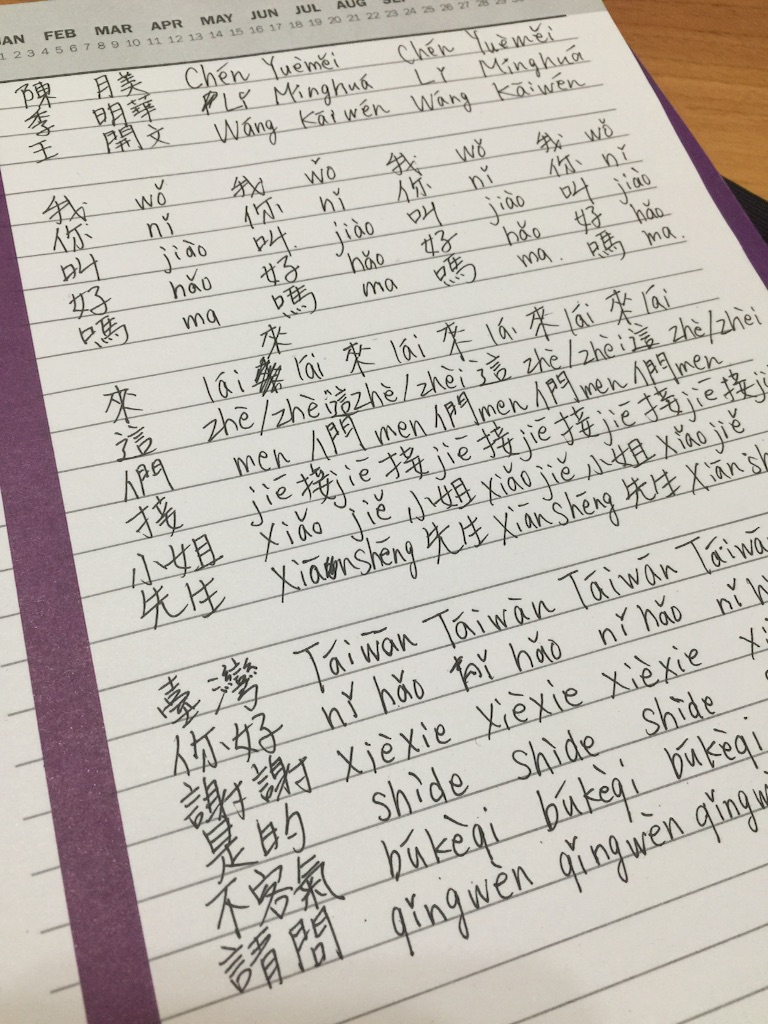 JAN FEB MAR APR MAY JUN JUL AUG
1 2 3 4 5 6 7 8 9 10 11 12 13 14 15 16 17 18 19 20 21 22 23 24 25 26 27 28 29 30
陳 月美 Chén Yuèměi Chén Yuèměi
李 明華 Lǐ Mínghuá Lǐ Mínghuá
王 開文 Wáng Kāiwén Wáng Kāiwén
我 wǒ 我 wǒ 我 wǒ 我 wǒ
你 nǐ 你 nǐ 你 nǐ 你 nǐ
叫 jiào 叫 jiào 叫 jiào 叫 jiào
好 hǎo 好 hǎo 好 hǎo 好 hǎo
嗎 ma 嗎 ma 嗎 ma. 嗎 ma.
來 lái 來 lái 來 lái 來 lái 來 lái 來 lái
這 zhè/zhèi 這 zhè/zhèi 這 zhè/zhèi
們 men 們 men 們 men 們 men
接 jiē 接 jiē 接 jiē 接 jiē 接 jiē 接
小姐 xiǎo jiě 小姐 xiǎo jiě 小姐 xiǎo jiě
先生 xiānshēng 先生 xiānshēng 先生
臺灣 Táiwān Táiwàn Táiwān
你好 nǐ hǎo nǐ hǎo nǐ hǎo nǐ
謝謝 xièxie xièxie xièxie
是的 shìde shìde shìde
不客氣 búkèqi búkèqi búkèqi
請問 qǐngwèn qǐngwèn